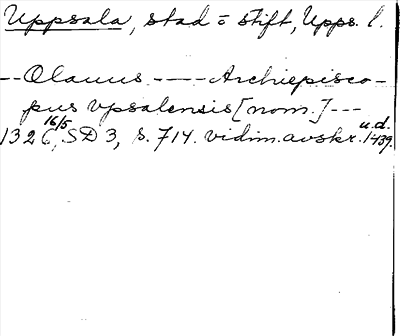 Uppsala, stad o stift, Upps. l.
--Olauus.----Archiepisco-
pus Vpsalensis [nom.]---
1326 16/5, SD 3, s. 714. vidim. avskr. u.d. 1439.